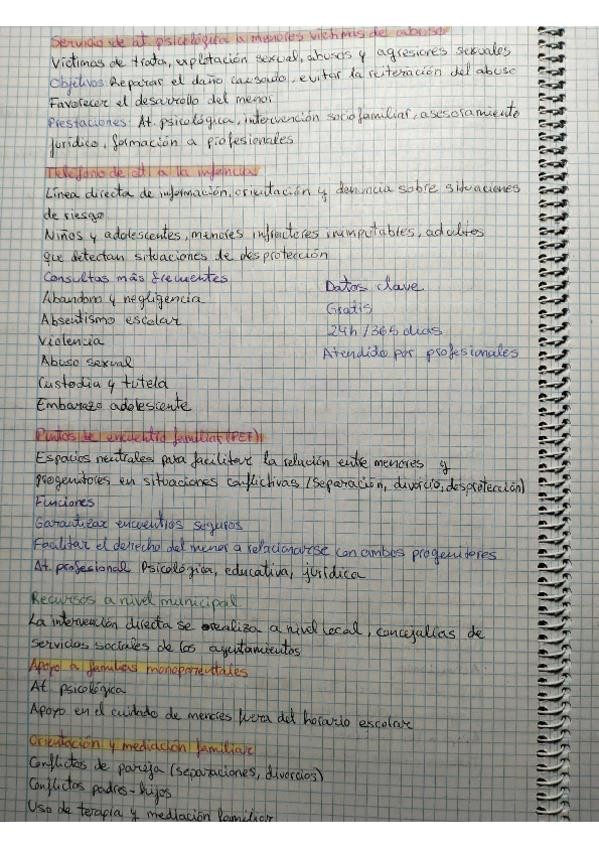 Servicio de at. psicológica a menores víctimas del abuso
Víctimas de trata, explotación sexual, abusos y agresiones sexuales
Objetivos Reparar el daño causado, evitar la reiteración del abuso
Favorecer el desarrollo del menor
Prestaciones: At. psicológica, intervención sociofamiliar, asesoramiento
jurídico, formación a profesionales
Teléfono de at. a la infancia
Línea directa de información, orientación y denuncia sobre situaciones
de riesgo
Niños y adolescentes, menores infractores inimputables, adultos
que detectan situaciones de desprotección
Consultas más frecuentes
Abandono y negligencia
Absentismo escolar
Violencia
Abuso sexual
Custodia y tutela
Embarazo adolescente
Datos clave
Gratis
24h / 365 días
Atendido por profesionales
Puntos de encuentro familiar (PEF)
Espacios neutrales para facilitar la relación entre menores y
progenitores en situaciones conflictivas (separación, divorcio, desprotección)
Funciones
Garantizar encuentros seguros
Facilitar el derecho del menor a relacionarse con ambos progenitores
At. profesional Psicológica, educativa, jurídica
Recursos a nivel municipal
La intervención directa se realiza a nivel local, concejalías de
servicios sociales de los ayuntamientos
Apoyo a familias monoparentales
At. psicológica
Apoyo en el cuidado de menores fuera del horario escolar
Orientación y mediación familiar
Conflictos de pareja (separaciones, divorcios)
Conflictos padres-hijos
Uso de terapia y mediación familiar